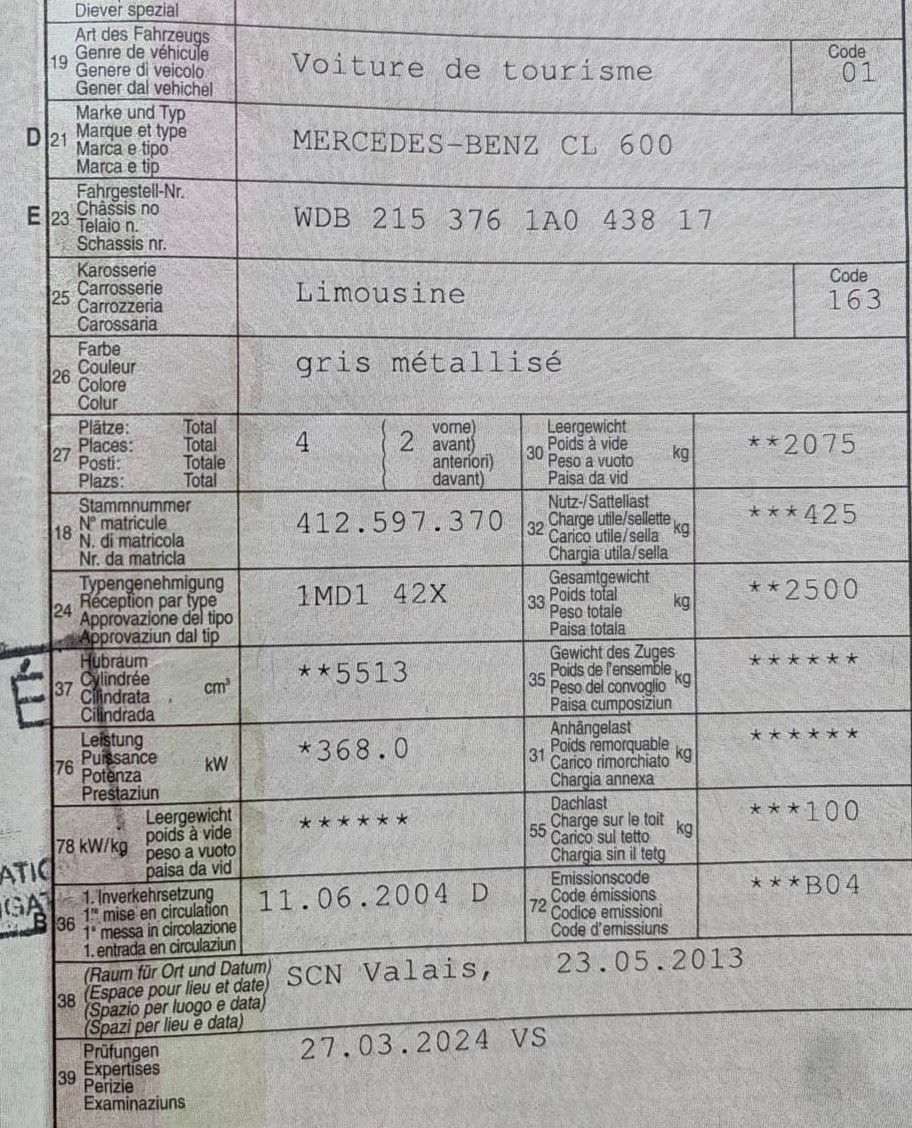 Diever spezial
19 Art des Fahrzeugs
Genre de véhicule
Genere di veicolo
Gener dal vehichel
Voiture de tourisme
Code
01
D 21 Marke und Typ
Marque et type
Marca e tipo
Marca e tip
MERCEDES-BENZ CL 600
E 23 Fahrgestell-Nr.
Châssis no
Telaio n.
Schassis nr.
WDB 215 376 1A0 438 17
25 Karosserie
Carrosserie
Carrozzeria
Carossaria
Limousine
Code
163
26 Farbe
Couleur
Colore
Colur
gris métallisé
27 Plätze: Total
Places: Total
Posti: Totale
Plazs: Total
4 ( 2 vorne)
avant)
anteriori)
davant)
30 Leergewicht
Poids à vide kg
Peso a vuoto
Paisa da vid
**2075
18 Stammnummer
N° matricule
N. di matricola
Nr. da matricla
412.597.370
32 Nutz-/Sattellast
Charge utile/sellette kg
Carico utile/sella
Chargia utila/sella
***425
24 Typengenehmigung
Réception par type
Approvazione del tipo
Approvaziun dal tip
1MD1 42X
33 Gesamtgewicht
Poids total kg
Peso totale
Paisa totala
**2500
É
37 Hubraum
Cylindrée cm³
Cilindrata
Cilindrada
**5513
35 Gewicht des Zuges
Poids de l'ensemble kg
Peso del convoglio
Paisa cumposiziun
******
76 Leistung
Puissance kW
Potenza
Prestaziun
*368.0
31 Anhängelast
Poids remorquable kg
Carico rimorchiato
Chargia annexa
******
78 kW/kg Leergewicht
poids à vide
peso a vuoto
paisa da vid
******
55 Dachlast
Charge sur le toit kg
Carico sul tetto
Chargia sin il tetg
***100
ATIO
B 36 1. Inverkehrsetzung
1re mise en circulation
1a messa in circolazione
1. entrada en circulaziun
11.06.2004 D
72 Emissionscode
Code émissions
Codice emissioni
Code d'emissiuns
***B04
38 (Raum für Ort und Datum)
(Espace pour lieu et date)
(Spazio per luogo e data)
(Spazi per lieu e data)
SCN Valais, 23.05.2013
39 Prüfungen
Expertises
Perizie
Examinaziuns
27.03.2024 VS